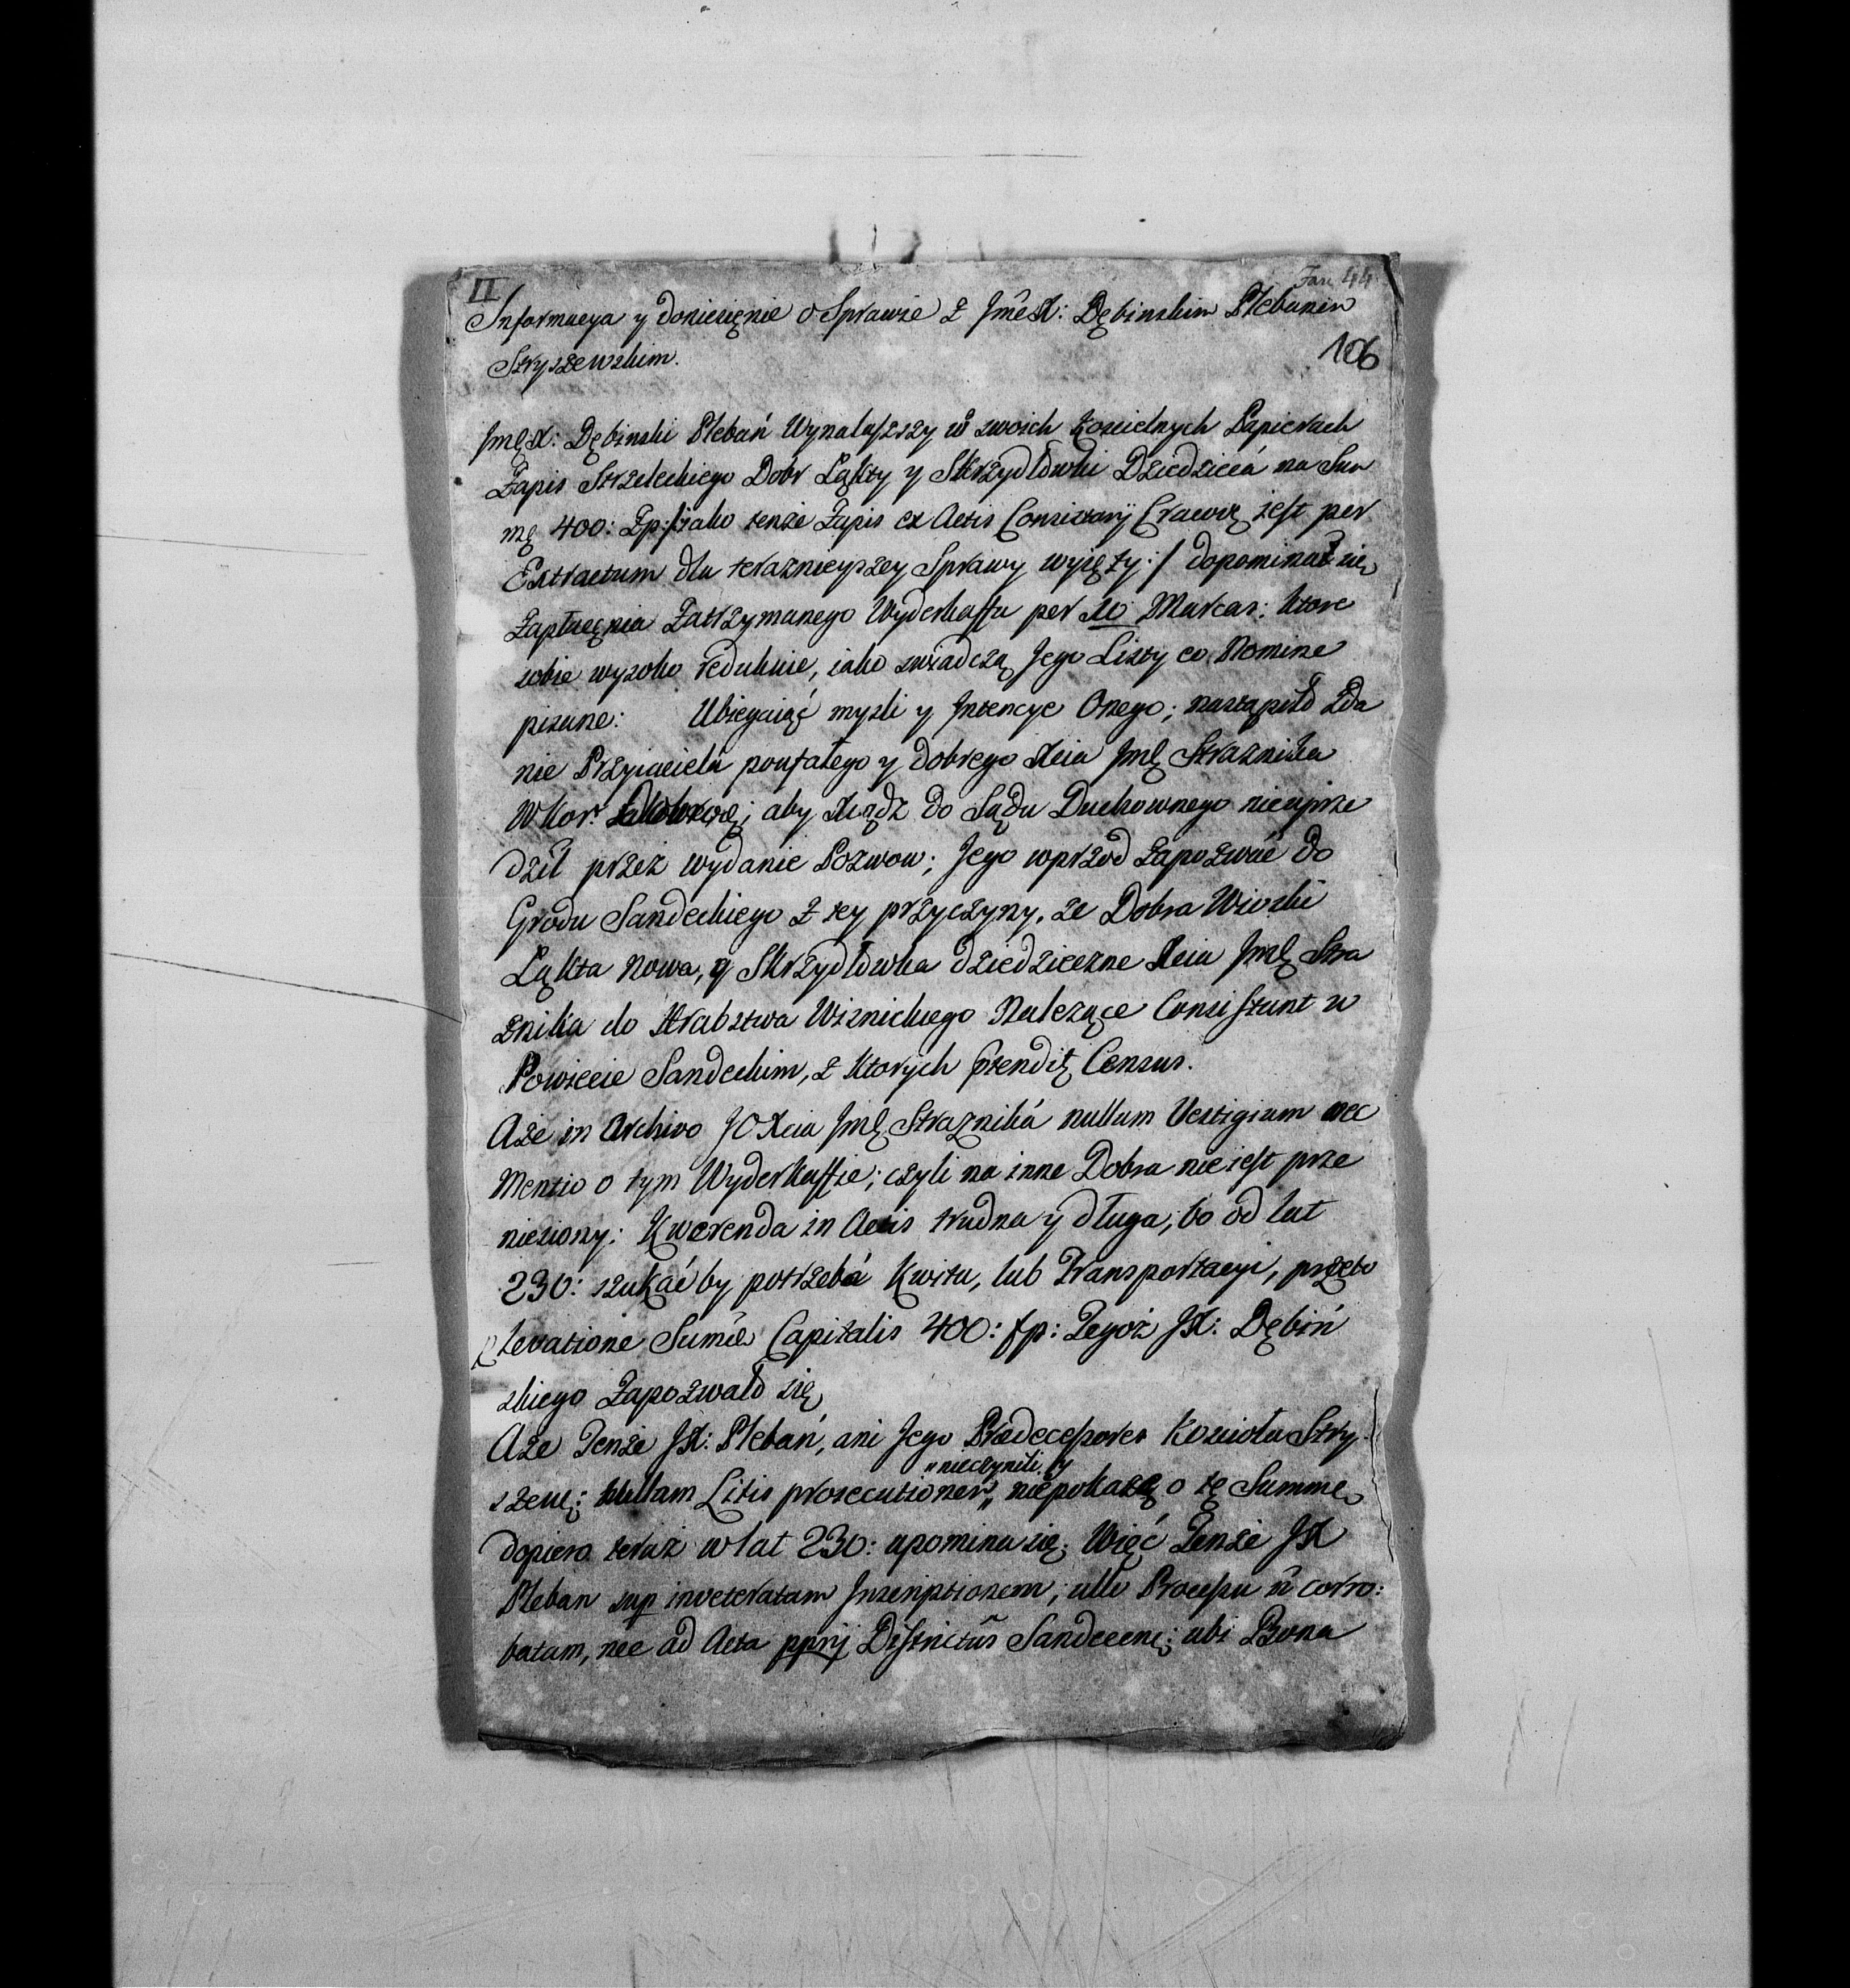 II
Fasc 44.
Informacya y doniesięnie o Sprawie z Jmć X: Dębinskim Plebanem
Stryszewskim.
106
Jmć X: Dębinski Plebań Wynalaszszy w swoich Koscielnych Papierach
Zapis Strzeleckiego Dobr Ląkty y Skrzydlowki Dziedzica na Sum
mę 400: Zp: /: iako tenże Zapis ex Actis Consistorij Cracov: iest per
Extractum dla teraznieyszey Sprawy wyięty :/ dopominał się
Zapłacęnia Zatrzymanego Wyderkaffu per 10 Marcas: ktore
sobie wysoko redukuie, iako swiadczą Jego Listy eo Nomine
pisane: Ubiegaiąć mysli y Intencye Onego; nastąpiło Zda
nie Przyiaciela poufałego y dobrego Xcia Jmć Straznika
W Kor: aby Xiądz do Sądu Duchownego nieuprze
dził przez wydanie Pozwow; Jego wprzod Zapozwać do
Grodu Sandeckiego z tey przyczyny, ze Dobra Wioski
Ląkta Nowa, y Skrzydlowka dziedziczne Xcia Jmć Stra
znika do Hrabstwa Wisnickiego Nalezące Consistunt w
Powiecie Sandeckim, z ktorych ptendit Census.
Aże in Archivo JO Xcia Jmć Straznika nullum Vestigium nec
Mentio o tym Wyderkaffie; czyli na inne Dobra nie iest prze
niesiony: Kwerenda in Actis trudna y długa; bo od lat
230: szukać by potrzeba Kwitu, lub Transportacyi, przeto
levatione Sumæ Capitalis 400: fp: Tegoż JX: Dębiń
skiego Zapozwało się
Aże Tenże JX: Plebań, ani Jego Prædecessores Koscioła Stry
szew: nullam Litis prosecutionem „nieczynili, y niepokażą o tę Summę
dopiero teraz w lat 230: upomina się. Więć Tenże JX
Pleban sup inveteratam Inscriptionem, ullo Processu ñ corro:
batam, nec ad Acta pprij Districtûs Sandecen: ubi Bona